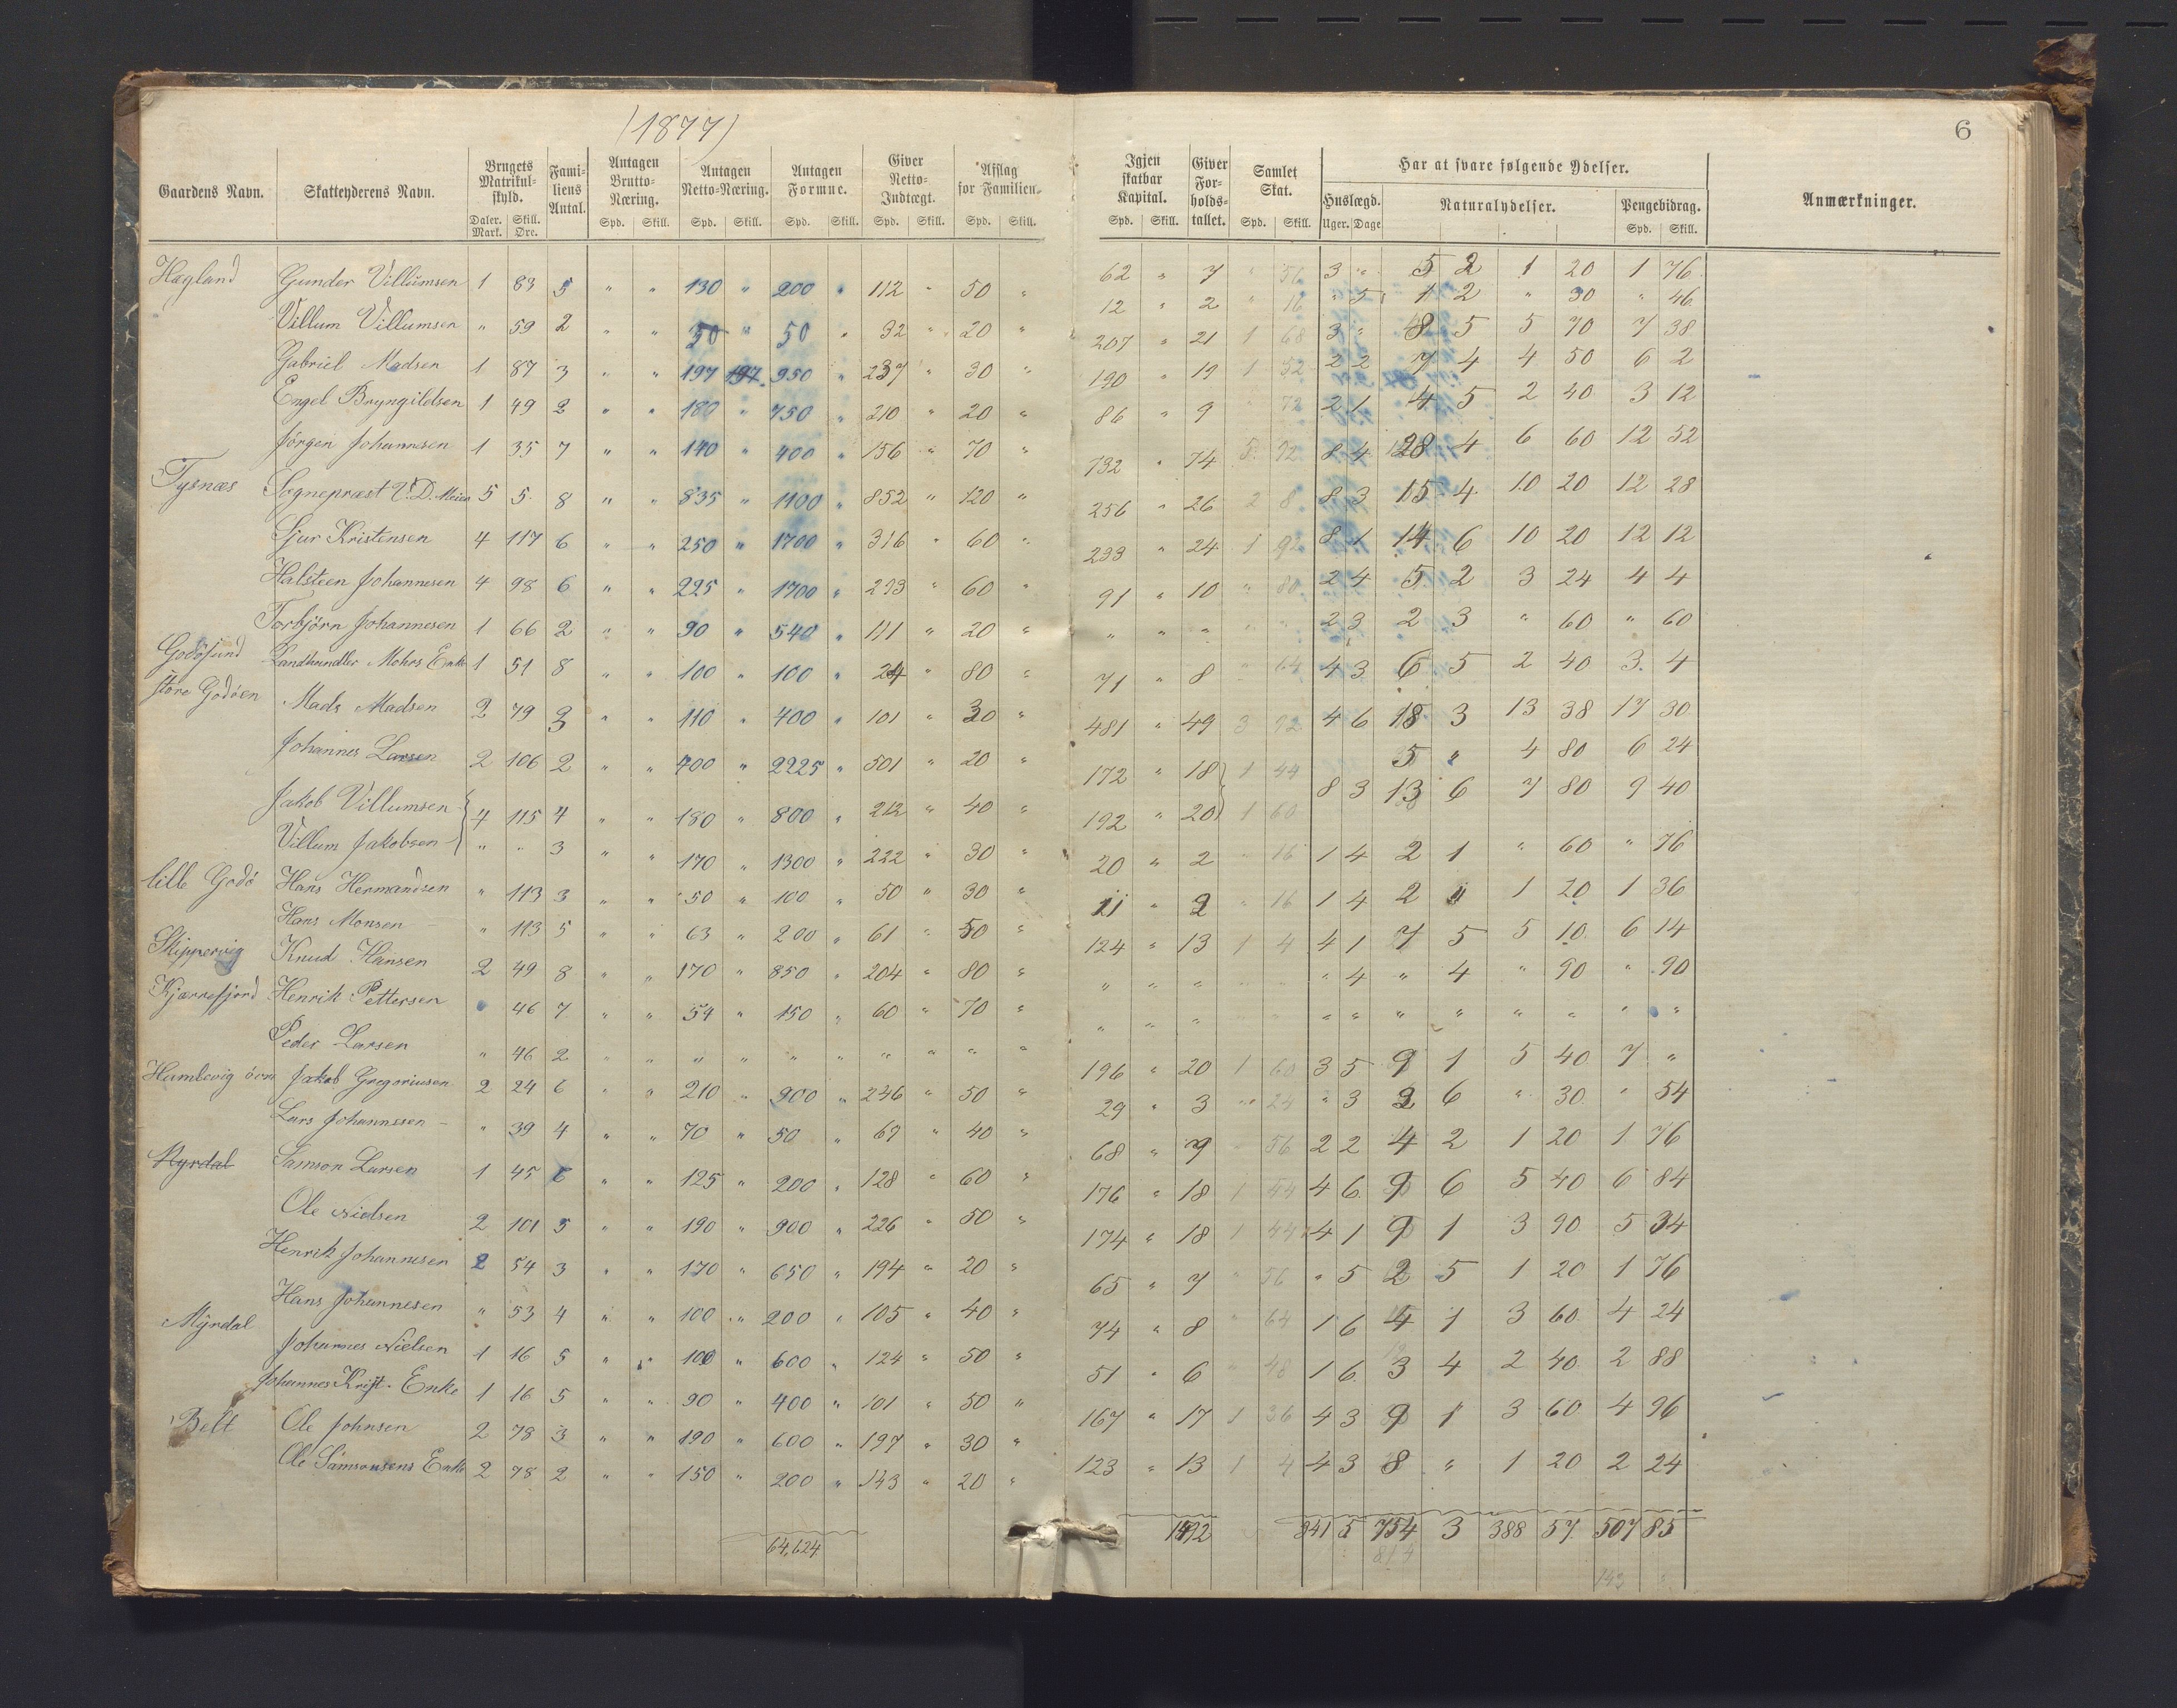 (1877)
6
Gaardens Navn. Skatteyderens Navn. Brugets Matrikul-skyld. Daler. Mark. Skill. Øre. Fami-liens Antal. Antagen Brutto-Næring. Spd. Skill. Antagen Netto-Næring. Spd. Skill. Antagen Formue. Spd. Skill. Giver Netto-Indtægt. Spd. Skill. Afslag for Familien. Spd. Skill. Igjen skatbar Kapital. Spd. Skill. Giver For-holds-tallet. Samlet Skat. Spd. Skill. Har at svare følgende Ydelser. Huslægd. Uger. Dage Naturalydelser. Pengebidrag. Spd. Skill. Anmærkninger.
Hægland Gunder Villumsen 1 83 5 " " 130 " 200 " 112 " 50 " 62 " 7 " 56 3 " 5 2 1 20 1 76
Villum Villumsen " 59 2 " " 50 " 50 " 32 " 20 " 12 " 2 " 16 " 5 1 2 " 30 " 46
Gabriel Madsen 1 87 3 " " 197 197 950 " 237 " 30 " 207 " 21 1 68 3 " 8 5 5 70 7 38
Engel Bryngildsen 1 49 2 " " 180 " 750 " 210 " 20 " 190 " 19 1 52 2 2 7 4 4 50 6 2
Jörgen Johannesen 1 35 7 " " 140 " 400 " 156 " 70 " 86 " 9 " 72 2 1 4 5 2 40 3 12
Tysnæs Sognepræst V.D. Meier 5 5 8 " " 835 " 1100 " 852 " 120 " 732 " 74 5 92 8 4 28 4 6 60 12 52
Sjur Kristensen 4 117 6 " " 250 " 1700 " 316 " 60 " 256 " 26 2 8 8 3 15 4 10 20 12 28
Halsteen Johannesen 4 98 6 " " 225 " 1700 " 293 " 60 " 233 " 24 1 92 8 1 14 6 10 20 12 12
Torbjörn Johannesen 1 66 2 " " 90 " 540 " 111 " 20 " 91 " 10 " 80 2 4 5 2 3 24 4 4
Godösund Landhandler Mohrs Enke 1 51 8 " " 100 " 100 " 24 " 80 " " " " " " 2 3 2 3 " 60 " 60
Store Godöen Mads Madsen 2 79 3 " " 110 " 400 " 101 " 30 " 71 " 8 " 64 4 3 6 5 2 40 3 4
Johannes Larsen 2 106 2 " " 400 " 2225 " 501 " 20 " 481 " 49 3 92 4 6 18 3 13 38 17 30
Jakob Villumsen 4 115 4 " " 180 " 800 " 212 " 40 " 172 " 18 1 44 5 " 4 80 6 24
Villum Jakobsen " " 3 " " 170 " 1300 " 222 " 30 " 192 " 20 1 60 8 3 13 6 7 80 9 40
lille Godö Hans Hermandsen " 113 3 " " 50 " 100 " 50 " 30 " 20 " 2 " 16 1 4 2 1 " 60 " 76
Hans Monsen " 113 5 " " 63 " 200 " 61 " 50 " 11 " 2 " 16 1 4 2 " 1 20 1 36
Skippervig Knud Hansen 2 49 8 " " 170 " 850 " 204 " 80 " 124 " 13 1 4 4 1 7 5 5 10 6 14
Kjærrefjord Henrik Pettersen " 46 7 " " 54 " 150 " 60 " 70 " " " " " " " 4 " 4 " 90 " 90
Peder Larsen " 46 2 " " " " " " " " " " " " " " " " " " " " " " "
Humlevig övre Jakob Gregoriusen 2 24 6 " " 210 " 900 " 246 " 50 " 196 " 20 1 60 3 5 9 1 5 40 7 "
Lars Johannesen " 39 4 " " 70 " 50 " 69 " 40 " 29 " 3 " 24 " 3 3 6 " 30 " 54
Myrdal Samson Larsen 1 45 6 " " 125 " 200 " 128 " 60 " 68 " 7 " 56 2 2 4 2 1 20 1 76
Ole Nielsen 2 101 5 " " 190 " 900 " 226 " 50 " 176 " 18 1 44 4 6 9 6 5 40 6 84
Henrik Johannesen 2 54 3 " " 170 " 650 " 194 " 20 " 174 " 18 1 44 4 1 9 1 3 90 5 34
Hans Johannesen " 53 4 " " 100 " 200 " 105 " 40 " 65 " 7 " 56 " 5 2 5 1 20 1 76
Myrdal Johannes Nielsen 1 16 5 " " 100 " 600 " 124 " 50 " 74 " 8 " 64 1 6 4 1 3 60 4 24
Johannes Krist. Enke 1 16 5 " " 90 " 400 " 101 " 50 " 51 " 6 " 48 1 6 3 4 2 40 2 88
Belt Ole Johnsen 2 78 3 " " 190 " 600 " 197 " 30 " 167 " 17 1 36 4 3 9 1 3 60 4 96
Ole Samsonsens Enke 2 78 2 " " 150 " 200 " 143 " 20 " 123 " 13 1 4 4 3 8 " 1 20 2 24
64,624 1492 341 5 754 3 388 57 507 85
814
143